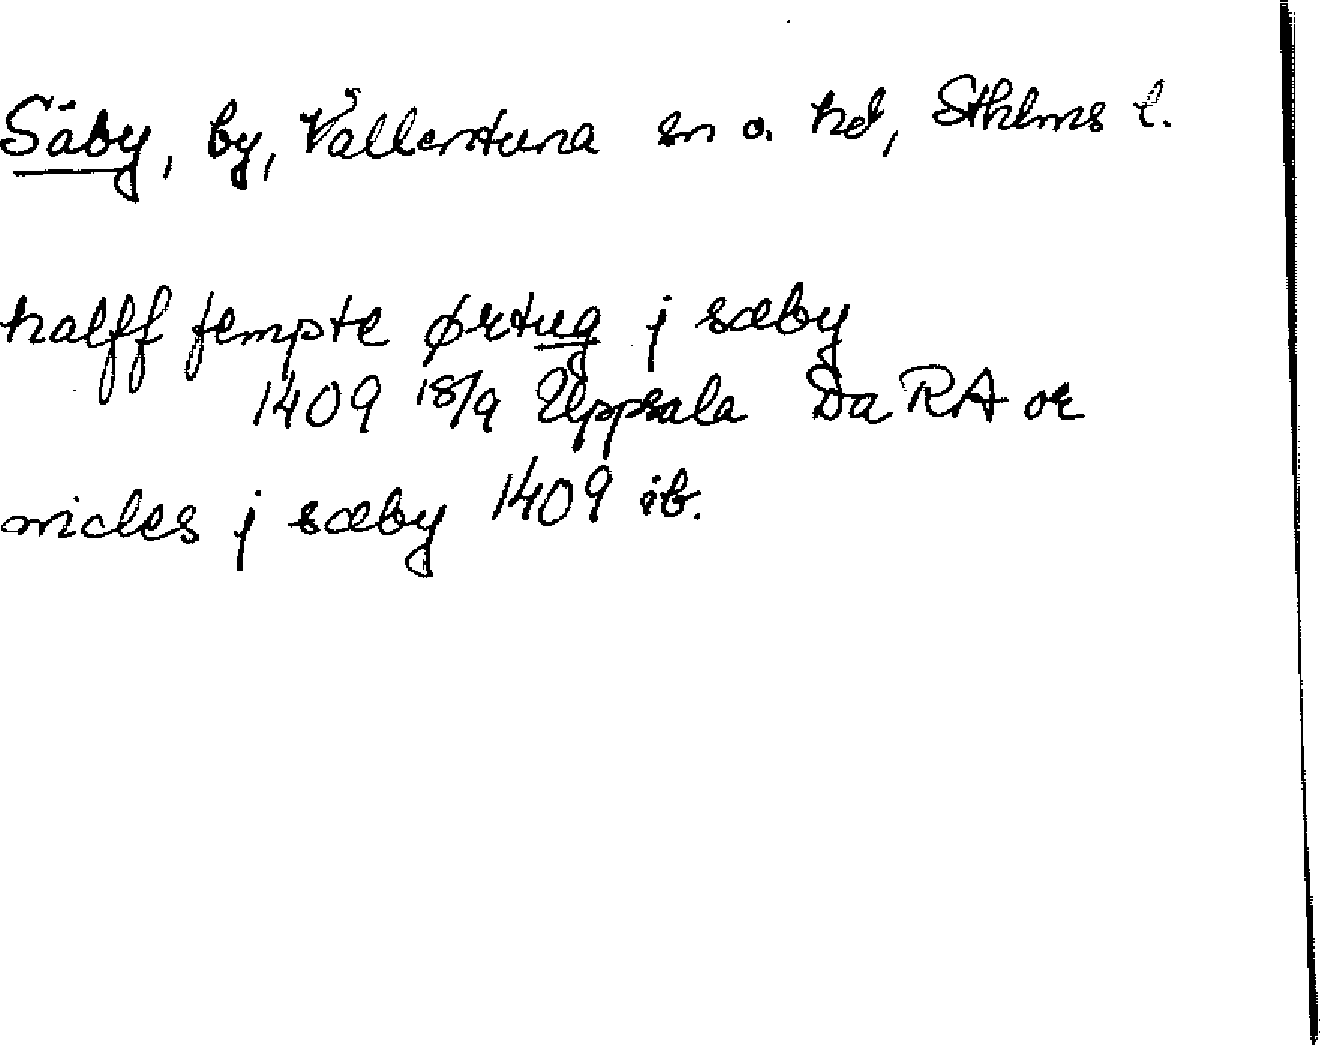 Säby, by, Vallentuna sn o. hd, Sthlms l.
halff fempte ørtug j sæby
1409 18/9 Uppsala Da RA or
nicles j sæby 1409 ib.